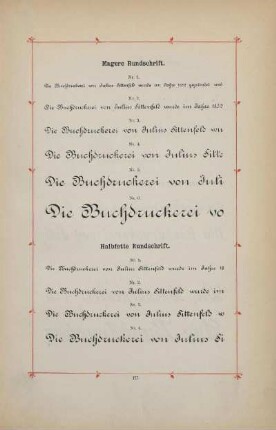 Magere Rundschrift.
Nr. 1.
Die Buchdruckerei von Julius Sittenfeld wurde im Jahre 1832 gegründet und
Nr. 2.
Die Buchdruckerei von Julius Sittenfeld wurde im Jahre 1832
Nr. 3.
Die Buchdruckerei von Julius Sittenfeld wur
Nr. 4.
Die Buchdruckerei von Julius Sitte
Nr. 5.
Die Buchdruckerei von Juli
Nr. 6.
Die Buchdruckerei vo
Halbfette Rundschrift.
Nr. 1.
Die Buchdruckerei von Julius Sittenfeld wurde im Jahre 18
Nr. 2.
Die Buchdruckerei von Julius Sittenfeld wurde im
Nr. 3.
Die Buchdruckerei von Julius Sittenfeld w
Nr. 4.
Die Buchdruckerei von Julius Si